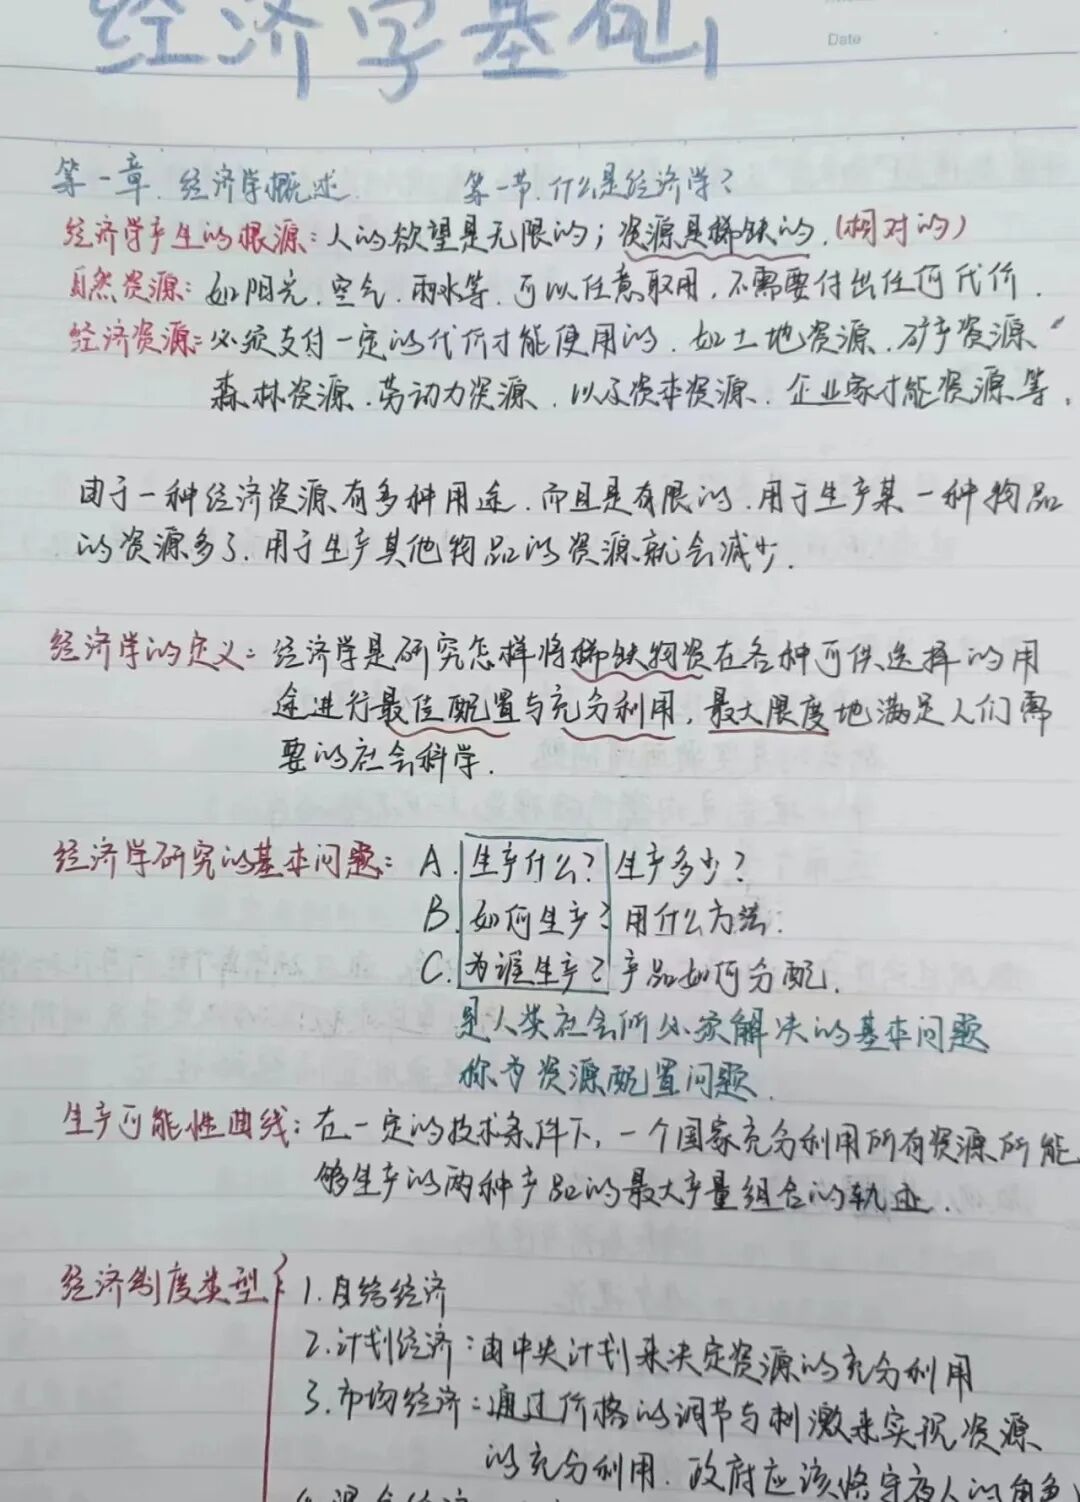 经济学基础
Date
第一章.经济学概述. 第一节.什么是经济学?
经济学产生的根源:人的欲望是无限的;资源是稀缺的.(相对的)
自然资源:如阳光.空气.雨水等.可以任意取用.不需要付出任何代价.
经济资源:必须支付一定的代价才能使用的.如土地资源.矿产资源
森林资源.劳动力资源.以及资本资源.企业家才能资源等.
由于一种经济资源有多种用途.而且是有限的.用于生产某一种物品
的资源多了.用于生产其他物品的资源就会减少.
经济学的定义:经济学是研究怎样将稀缺物资在各种可供选择的用
途进行最佳配置与充分利用,最大限度地满足人们需
要的社会科学.
经济学研究的基本问题: A.生产什么? 生产多少?
B.如何生产? 用什么方法.
C.为谁生产? 产品如何分配.
是人类社会所必须解决的基本问题
称为资源配置问题.
生产可能性曲线:在一定的技术条件下,一个国家充分利用所有资源所能
够生产的两种产品的最大产量组合的轨迹.
经济制度类型 1.自给经济
2.计划经济:由中央计划来决定资源的充分利用
3.市场经济:通过价格的调节与刺激来实现资源
的充分利用.政府应该恪守夜人的角色